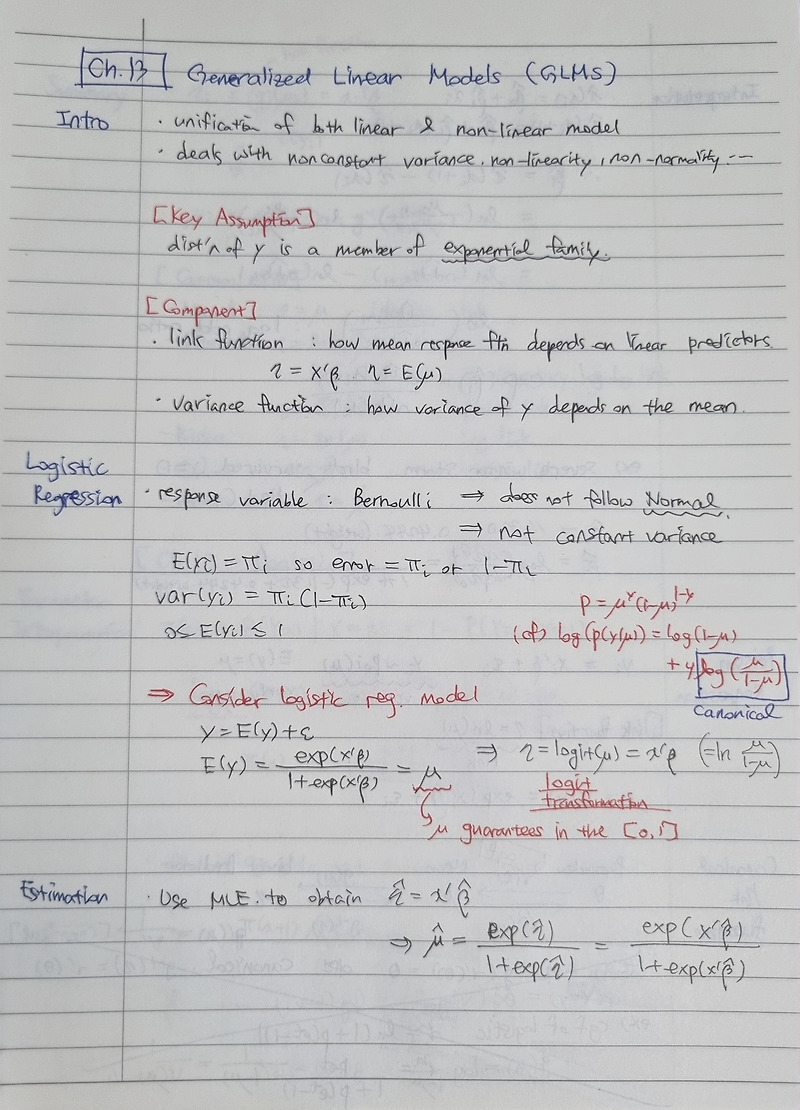 Ch.13 Generalized Linear Models (GLMs)
Intro · unification of both linear & non-linear model
· deals with nonconstant variance, non-linearity, non-normality ---
[Key Assumption]
dist'n of y is a member of exponential family.
[Component]
· link function : how mean response ftn depends on linear predictors.
η = x'β . η = E(μ)
· variance function : how variance of y depends on the mean.
Logistic
Regression · response variable : Bernoulli ⇒ does not follow Normal.
⇒ not constant variance
E(yi) = πi so error = πi or 1-πi
var(yi) = πi(1-πi)
0≤ E(yi) ≤ 1
P = μ^y(1-μ)^1-y
(cf) log(p(y|μ)) = log(1-μ)
+ y log(μ/1-μ)
Canonical
⇒ Consider logistic reg. model
y = E(y) + ε
E(y) = exp(x'β)/1+exp(x'β) = μ ⇒ η = logit(μ) = x'β (=ln μ/1-μ)
logit
transformation
μ guarantees in the [0,1]
Estimation · Use MLE. to obtain η̂ = x'β̂
⇒ μ̂ = exp(η̂)/1+exp(η̂) = exp(x'β̂)/1+exp(x'β̂)